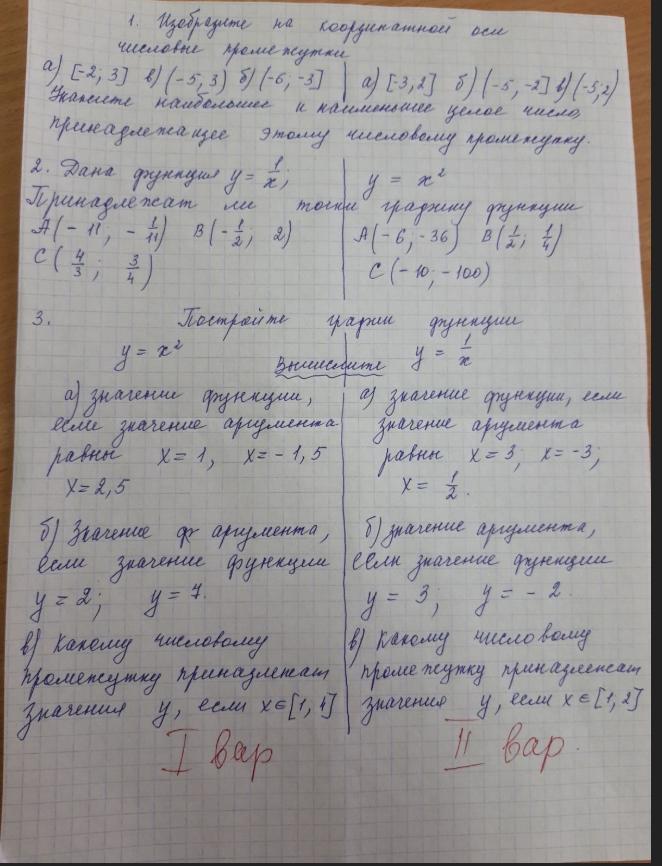 1. Изобразите на координатной оси
числовые промежутки
а) [-2; 3] в) (-5, 3) б) (-6, -3] а) [-3,2] б) (-5, -2] в) (-5;2)
Укажите наибольшее и наименьшее целое число,
принадлежащее этому числовому промежутку.
2. Дана функция y = 1/x; y = x²
Принадлежат ли точки графику функции
A(-11, -1/11) B(-1/2; 2) A(-6,-36) B(1/2; 1/4)
C(4/3; 3/4) C(-10; -100)
3. Постройте график функции
y = x² y = 1/x
Вычислите
а) значение функции, а) значение функции, если
если значение аргумента значение аргумента
равны x = 1, x = -1,5 равны x = 3; x = -3;
x = 2,5 x = 1/2.
б) Значение ф аргумента, б) значение аргумента,
если значение функции если значение функции
y = 2; y = 7. y = 3; y = -2.
в) Какому числовому в) Какому числовому
промежутку принадлежат промежутку принадлежат
значения y, если x∈[1,4] значения y, если x∈[1,2]
I вар II вар.